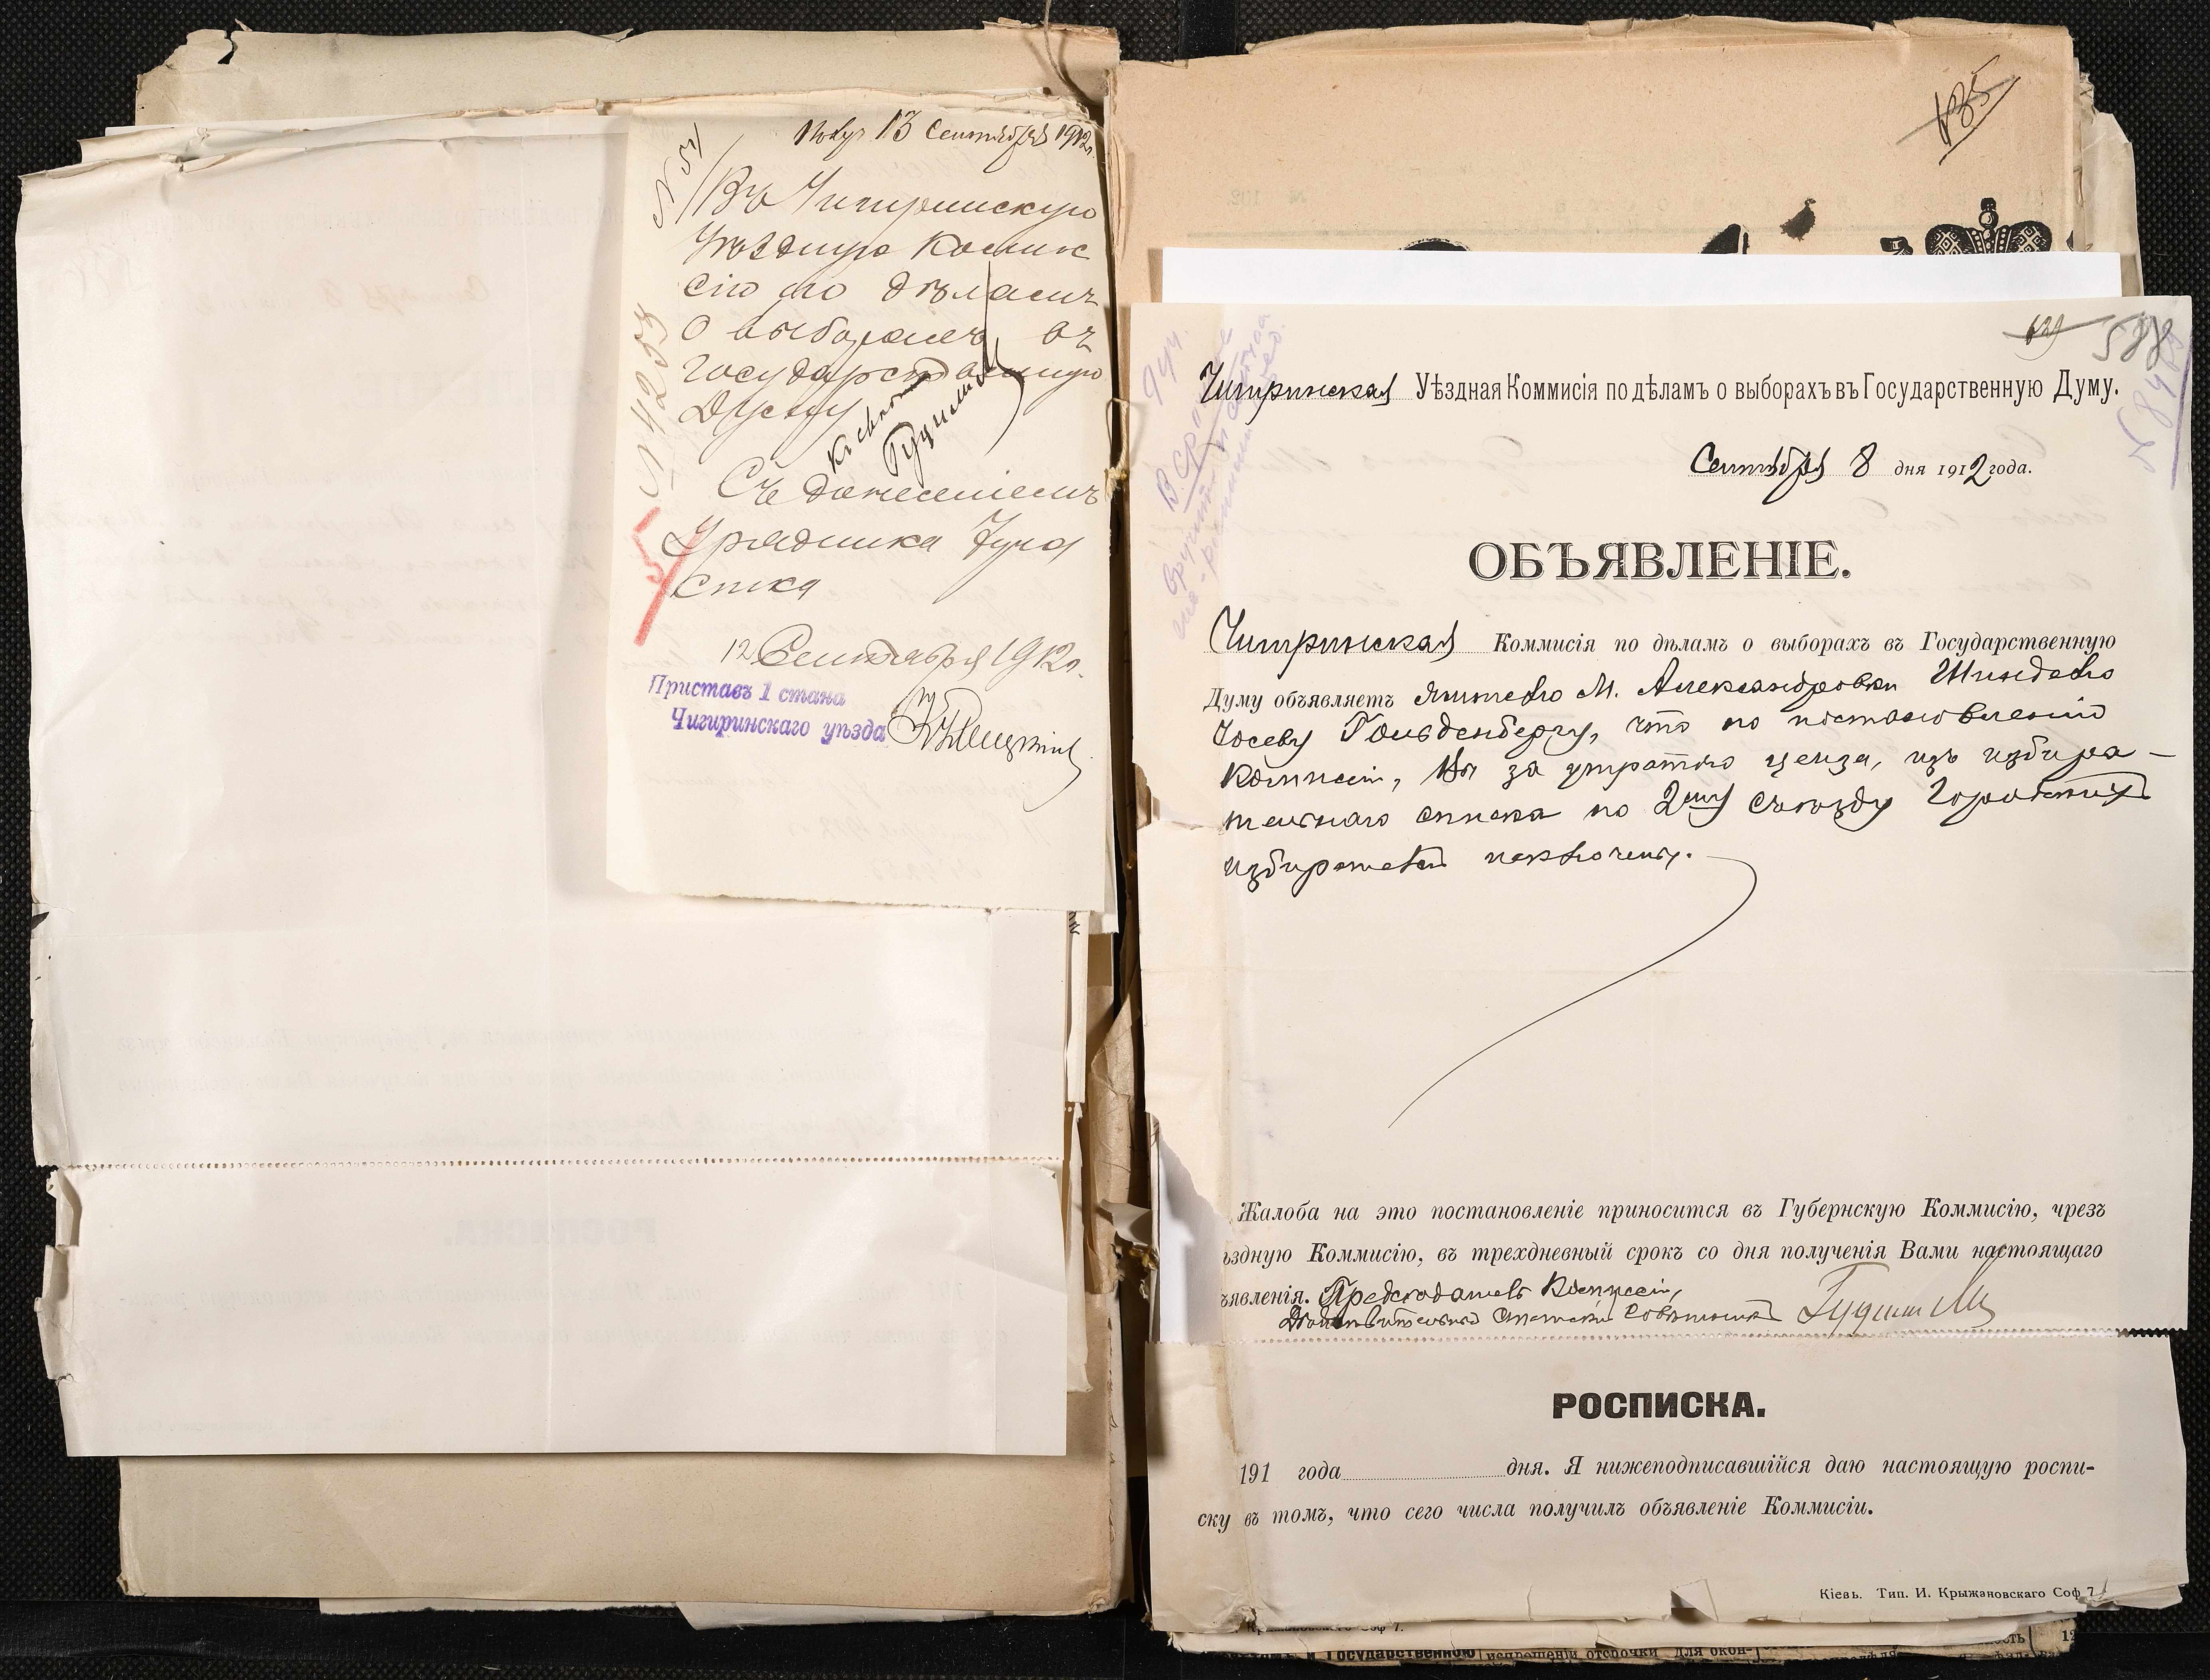 Получ 13 Сентября 1912 г.
№ 51
Въ Чигиринскую
Уѣздную Комис
сію по дѣламъ
о выборахъ въ
Государственную
Думу
Съ донесеніемъ
Урядника 7 уча
стка
12 Сентября 1912 г.
Приставъ 1 стана
Чигиринскаго уѣзда
№ 4255
135
588
Чигиринская Уѣздная Коммисія по дѣламъ о выборахъ въ Государственную Думу.
Сентября 8 дня 1912 года.
ОБЪЯВЛЕНІЕ.
Чигиринская Коммисія по дѣламъ о выборахъ въ Государственную
Думу объявляетъ жителю М. Александровки Шинделю
Іосеву Гольденбергу, что по постановленію
Комисіи, Вы за утратою ценза, изъ избира-
тельнаго списка по 2му съѣзду Городскихъ
избирателей исключены.
Жалоба на это постановленіе приносится въ Губернскую Коммисію, чрезъ
ѣздную Коммисію, въ трехдневный срокъ со дня полученія Вами настоящаго
ъявленія. Предсѣдатель Комисіи,
Дѣйствительный Статскій Совѣтникъ
РОСПИСКА.
191 года дня. Я нижеподписавшійся даю настоящую роспи-
ску въ томъ, что сего числа получилъ объявленіе Коммисіи.
Кіевъ. Тип. И. Крыжановскаго Соф 7
Государственную испрошеніи отсрочки для окон-